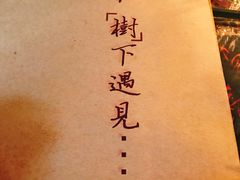 「樹」下遇見...